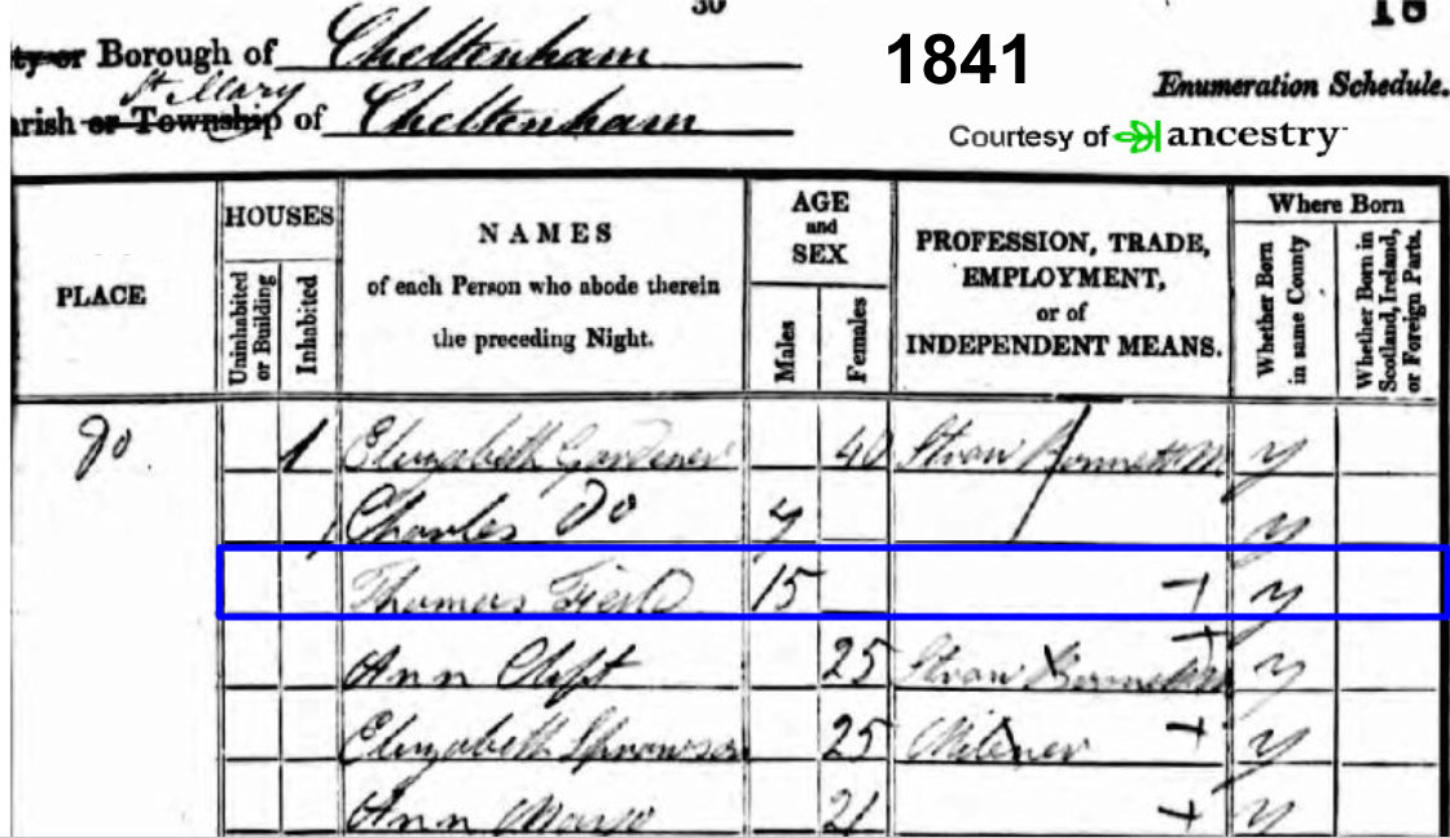 30
18
ty or Borough of Cheltenham
1841
St Mary
Enumeration Schedule.
arish or Township of Cheltenham
Courtesy of ancestry
PLACE
HOUSES
Uninhabited or Building
Inhabited
NAMES
of each Person who abode therein
the preceding Night.
AGE
and
SEX
Males
Females
PROFESSION, TRADE,
EMPLOYMENT,
or of
INDEPENDENT MEANS.
Where Born
Whether Born in same County
Whether Born in Scotland, Ireland, or Foreign Parts.
Do 1 Elizabeth Gardener 40 Straw Bonnett M y
Charles Do y
Thomas Field 15 y
Ann Clift 25 Straw y
Elizabeth 25 Milener y
Ann 21 y